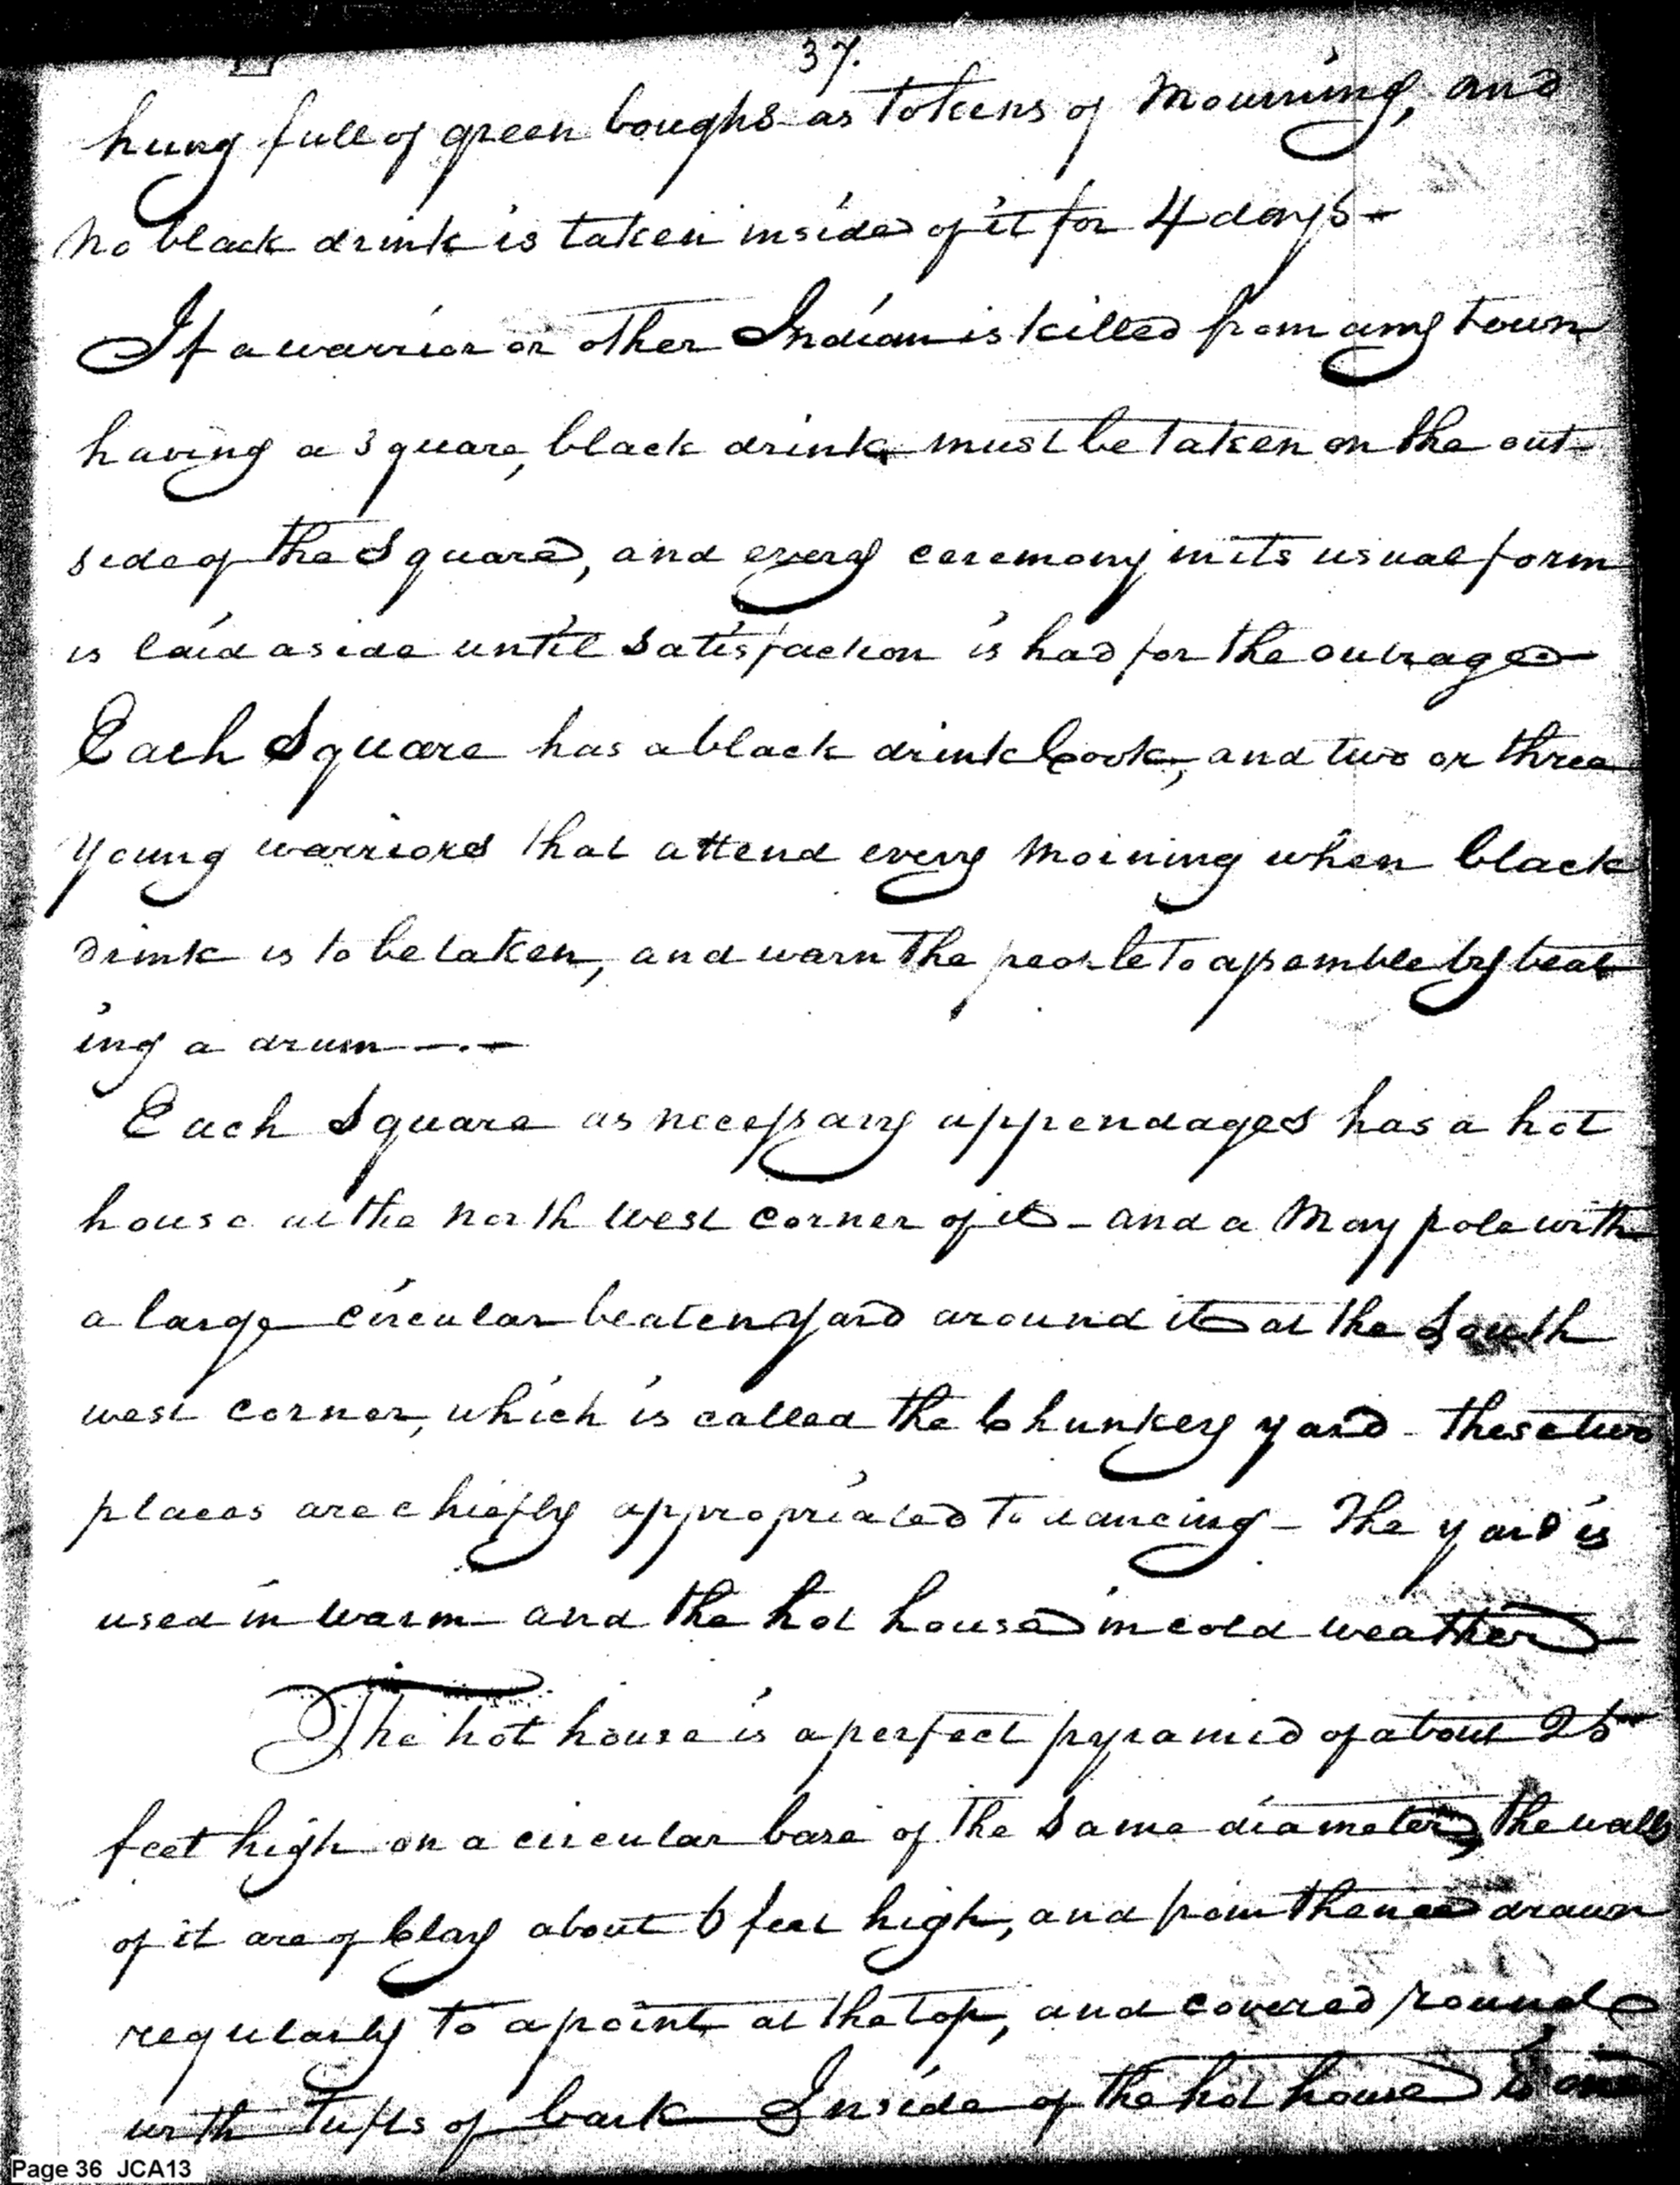 37.
hung full of green boughs as tokens of Mourning, and
no black drink is taken inside of it for 4 days—
If a warrior or other Indian is killed from any town
having a square, black drink must be taken on the out
side of the Square, and every ceremony in its usual form
is laid aside until satisfaction is had for the outrage—
Each Square has a black drink Cook, and two or three
young warriors that attend every morning when black
drink is to be taken, and warn the people to assemble by beat
ing a drum—.—
Each Square as necessary appendages has a hot
house at the north west corner of it — and a May pole with
a large circular beaten yard around it at the South
west corner, which is called the Chunkey yard — these two
places are chiefly appropriated to dancing — The yard is
used in warm and the hot house in cold weather—
The hot house is a perfect pyramid of about 25
feet high on a circular base of the same diameter, the walls
of it are of Clay about 6 feet high, and from thence drawn
regularly to a point at the top, and covered round
with tufts of bark — Inside of the hot house is one
Page 36 JCA13